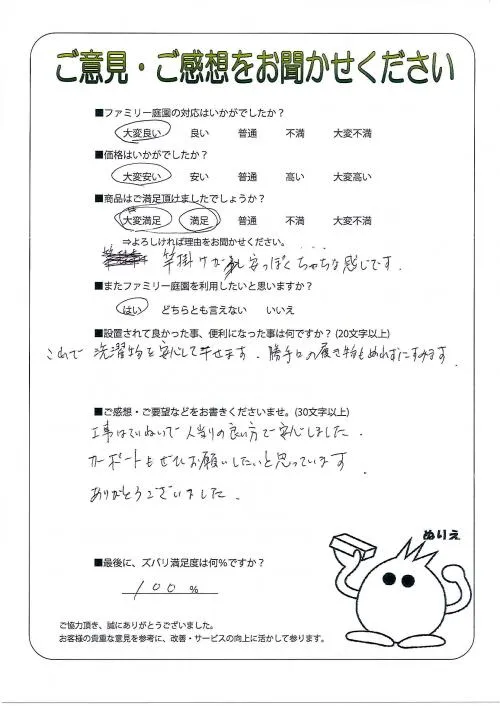 ご意見・ご感想をお聞かせください
■ファミリー庭園の対応はいかがでしたか？
大変良い 良い 普通 不満 大変不満
■価格はいかがでしたか？
大変安い 安い 普通 高い 大変高い
■商品はご満足頂けましたでしょうか？
大変満足 満足 普通 不満 大変不満
⇒よろしければ理由をお聞かせください。
竿掛けが 安っぽく ちゃちな感じです.
■またファミリー庭園を利用したいと思いますか？
はい どちらとも言えない いいえ
■設置されて良かった事、便利になった事は何ですか？(20文字以上)
これで 洗濯物を安心して干せます. 勝手口の履き物もぬれずにすみます.
■ご感想・ご要望などをお書きくださいませ。(30文字以上)
工事はていねいで 人当りの良い方で安心しました.
カーポートもぜひお願いしたいと思っています
ありがとうございました.
ぬりえ
■最後に、ズバリ満足度は何％ですか？
100 %
ご協力頂き、誠にありがとうございました。
お客様の貴重な意見を参考に、改善・サービスの向上に活かして参ります。